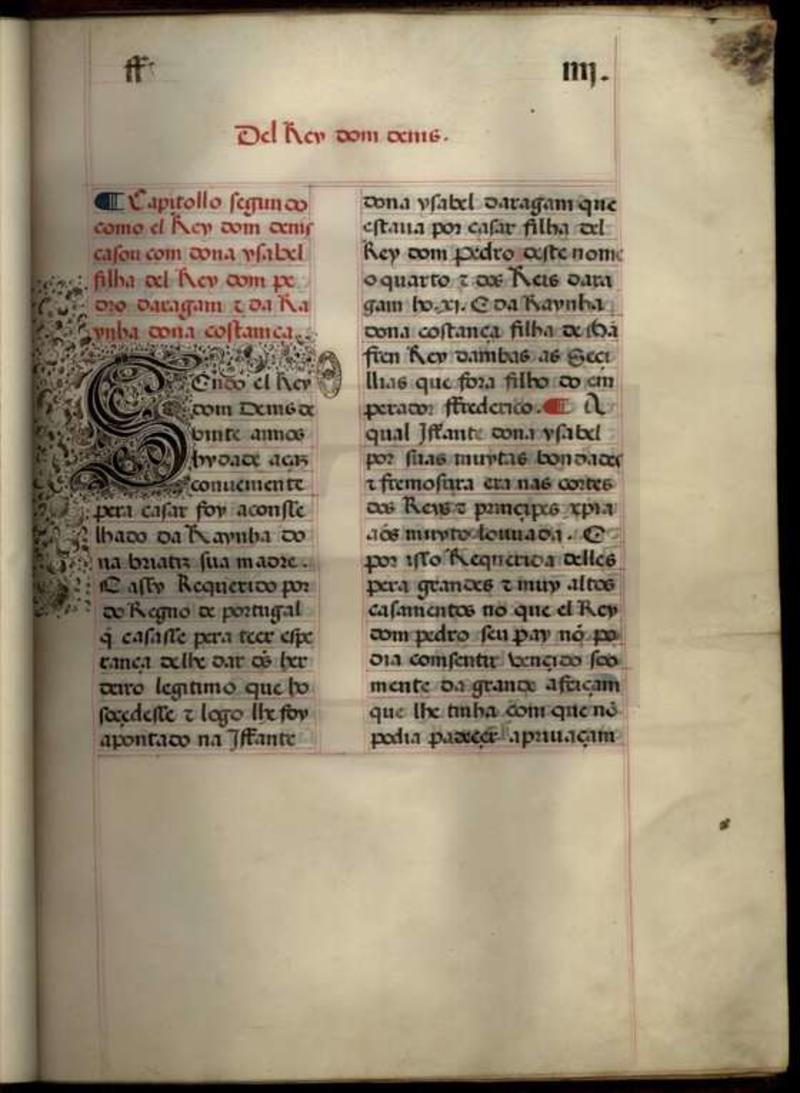 ff iiij.
Del Rey dom denis.
¶ Capitollo segundo
como el Rey dom denis
casou com dona ysabel
filha del Rey dom pe
dro daragam ⁊ da Ra
ynha dona costamça.
SEndo el Rey
dom Denis de
vinte annos
hydade
conuemente
pera casar foy aconsse
lhado da Raynha do
na briatiz sua madre.
E assy Requerido por
do Regno de portugal
q̃ casasse pera teer espe
rança delhe dar ds̃ her
deiro legitimo que ho
soçedesse ⁊ logo lhe foy
apontado na Jffante
dona ysabel daragam que
estaua por casar filha del
Rey dom pedro deste nome
o quarto ⁊ dos Reis dara
gam ho .xj. E da Raynha
dona costança filha de Mã
fren Rey dambas as Seci
llias que fora filho do em
perador ffrederico. ¶ A
qual Jffante dona ysabel
por suas muytas bondades
⁊ fremosura era nas cortes
dos Reys ⁊ prinçipes xp̃ia
aõs muyto louuada. E
por isto Requerida delles
pera grandes ⁊ muy altos
casamentos no que el Rey
dom pedro seu pay nõ po
dia comsentir vençido soo
mente da grande afeiçam
que lhe tinha com que nõ
podia padeçer apriuaçam